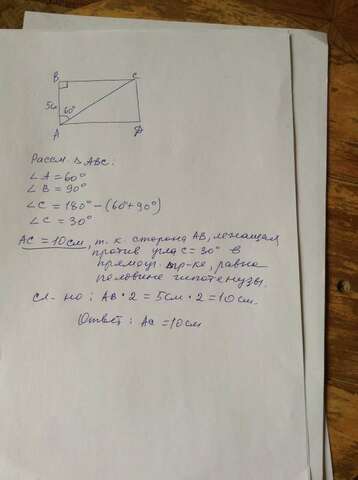 B C
5см 60°
A D
Рассм. △ ABC:
∠A = 60°
∠B = 90°
∠C = 180° - (60° + 90°)
∠C = 30°
AC = 10см, т.к. сторона AB, лежащая
против угла C = 30° в
прямоуг. тр-ке, равна
половине гипотенузы.
сл-но: AB · 2 = 5см · 2 = 10см.
Ответ: AC = 10см